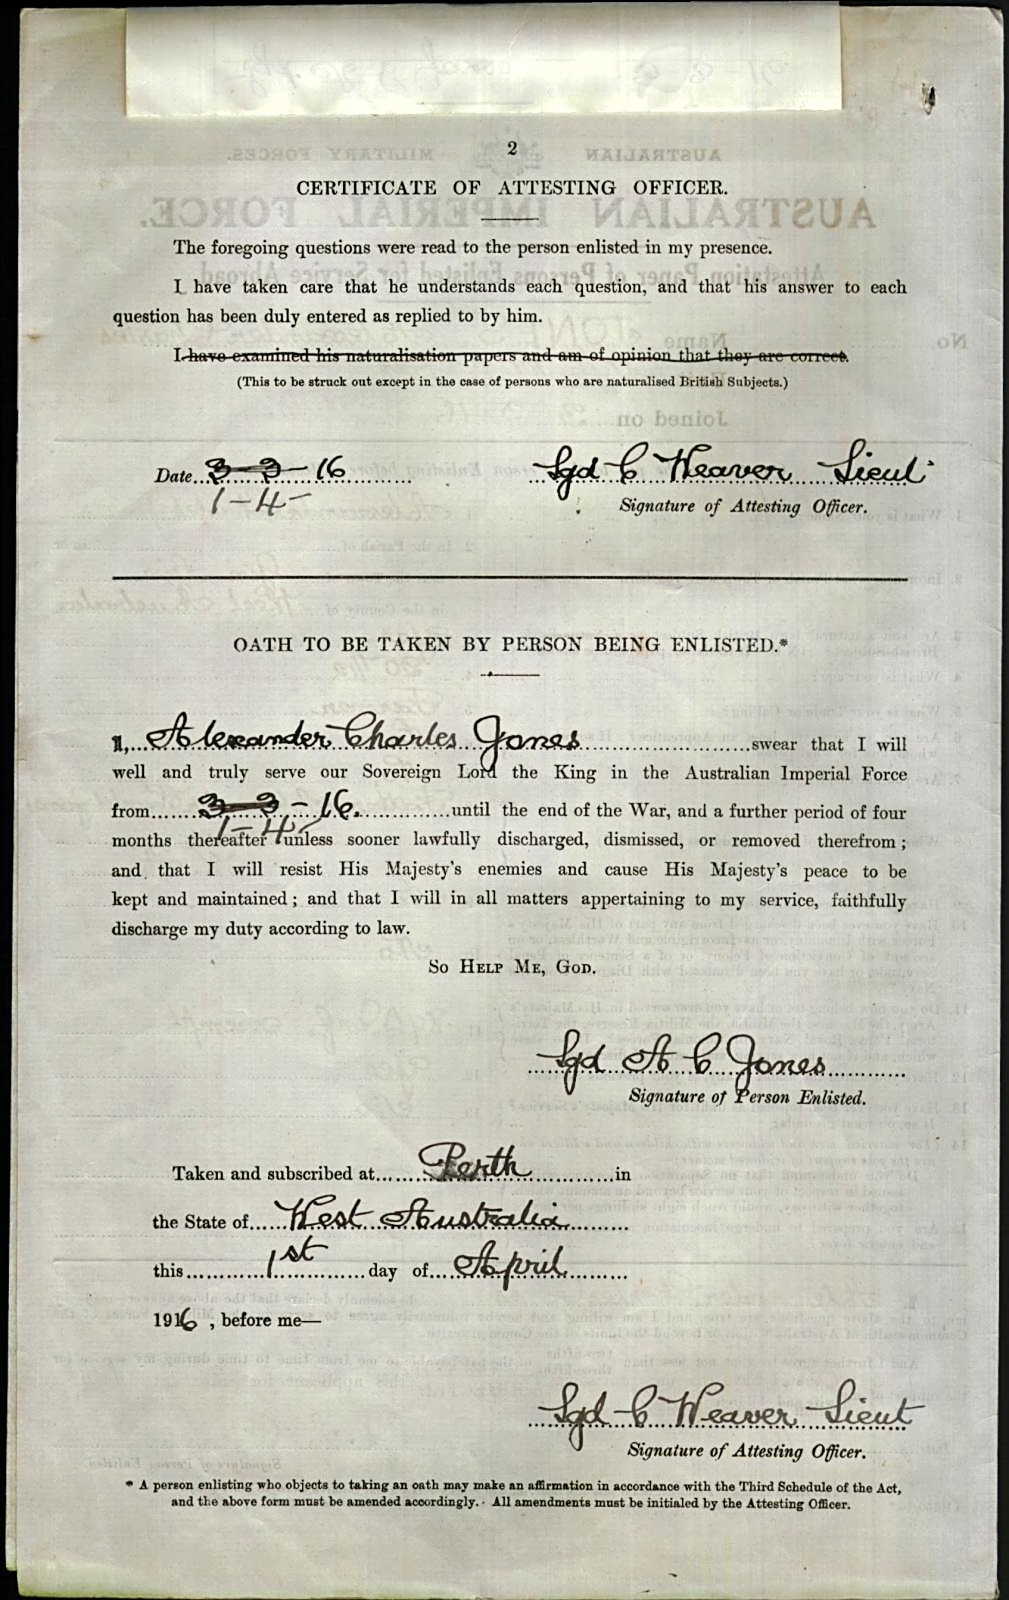 2
CERTIFICATE OF ATTESTING OFFICER.
The foregoing questions were read to the person enlisted in my presence.
I have taken care that he understands each question, and that his answer to each
question has been duly entered as replied to by him.
I have examined his naturalisation papers and am of opinion that they are correct.
(This to be struck out except in the case of persons who are naturalised British Subjects.)
Date 3-3-16 Sgd C Weaver Lieut
1-4- Signature of Attesting Officer.
OATH TO BE TAKEN BY PERSON BEING ENLISTED.*
I, Alexander Charles Jones swear that I will
well and truly serve our Sovereign Lord the King in the Australian Imperial Force
from 3-3-16. until the end of the War, and a further period of four
1-4
months thereafter unless sooner lawfully discharged, dismissed, or removed therefrom;
and that I will resist His Majesty's enemies and cause His Majesty's peace to be
kept and maintained; and that I will in all matters appertaining to my service, faithfully
discharge my duty according to law.
So Help Me, God.
Sgd A C Jones
Signature of Person Enlisted.
Taken and subscribed at Perth in
the State of West Australia
this 1st day of April
1916, before me—
Sgd C Weaver Lieut
Signature of Attesting Officer.
* A person enlisting who objects to taking an oath may make an affirmation in accordance with the Third Schedule of the Act,
and the above form must be amended accordingly. All amendments must be initialed by the Attesting Officer.